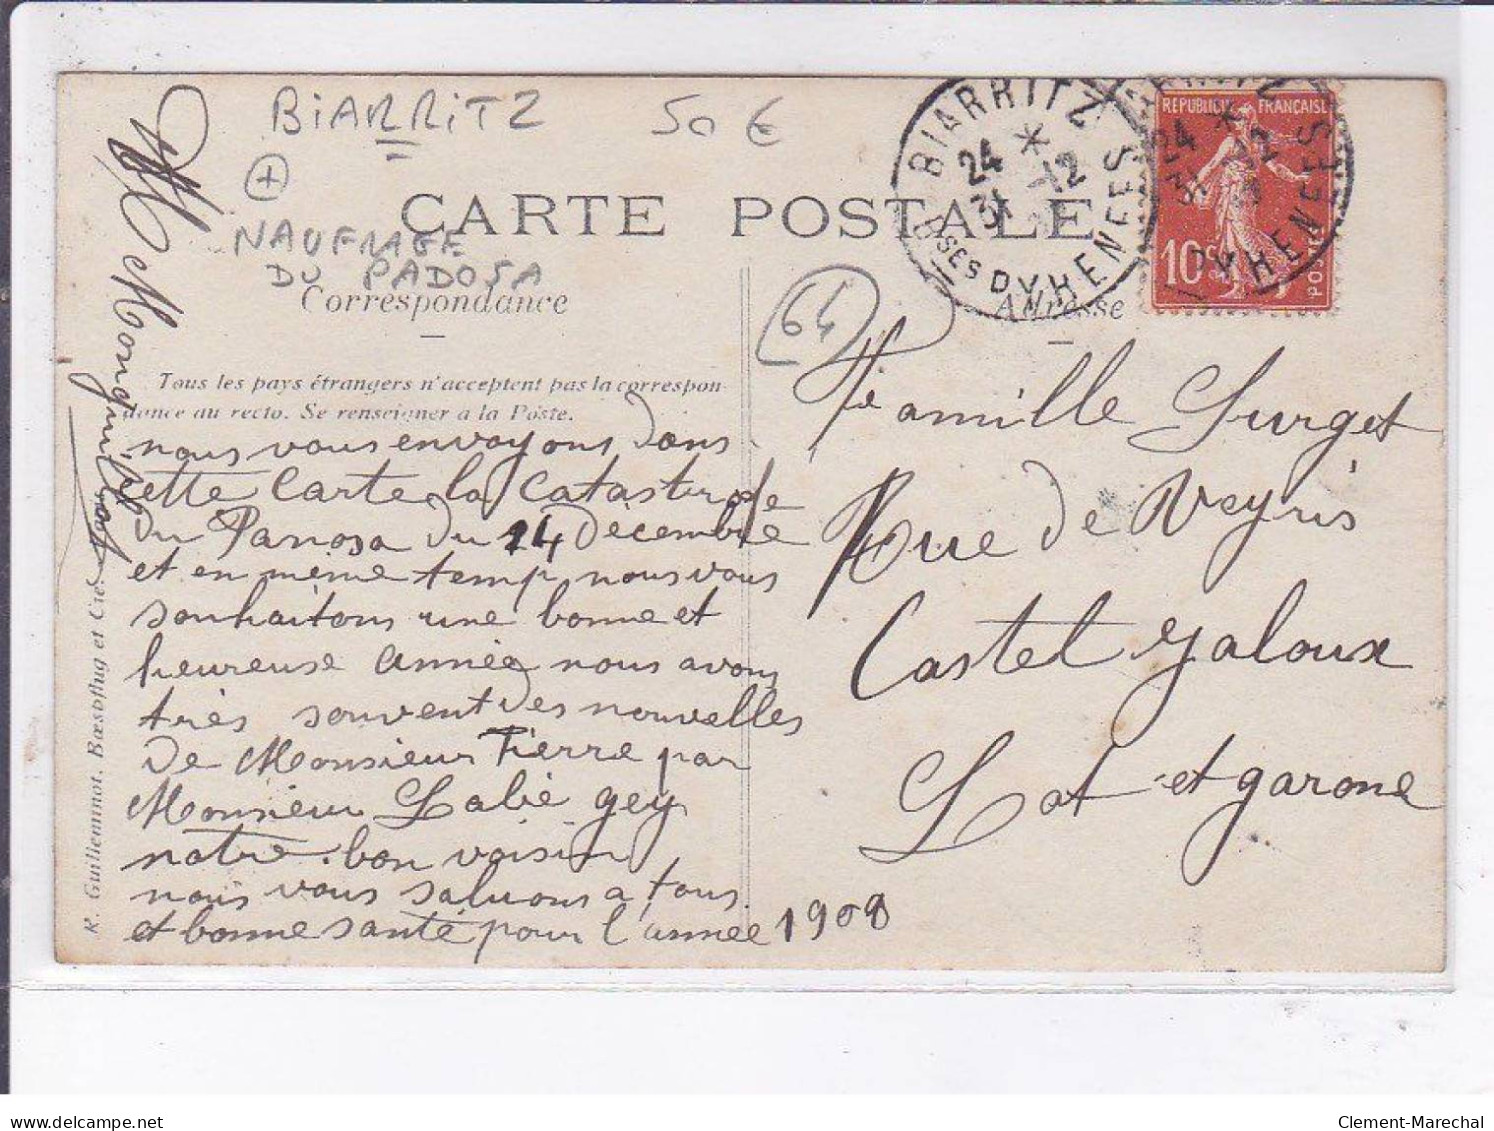 BiARRiTZ
50 €
+
NAUFRAGE
DU PADOSA
CARTE POSTALE
Correspondance
Adresse
64
Tous les pays étrangers n'acceptent pas la correspon-
dance au recto. Se renseigner a la Poste.
BIARRITZ
24
31 -12
Bses PYRENEES
REPUBLIQUE FRANÇAISE
10c
POSTES
nous vous envoyons dans
cette Carte la Catastrofe
du Panosa du 24 Décembre
et en même temp nous vous
souhaitons une bonne et
heureuse année nous avons
très souvent des nouvelles
de Monsieur Pierre par
Monsieur Labé gey
notre bon voisin
nous vous saluons a tous.
et bonne santé pour l'année 1908
Famille Surget
Rue de Veyris
Castel jaloux
Lot et garone
R. Guilleminot, Bœspflug et Cie.
Clement-Marechal